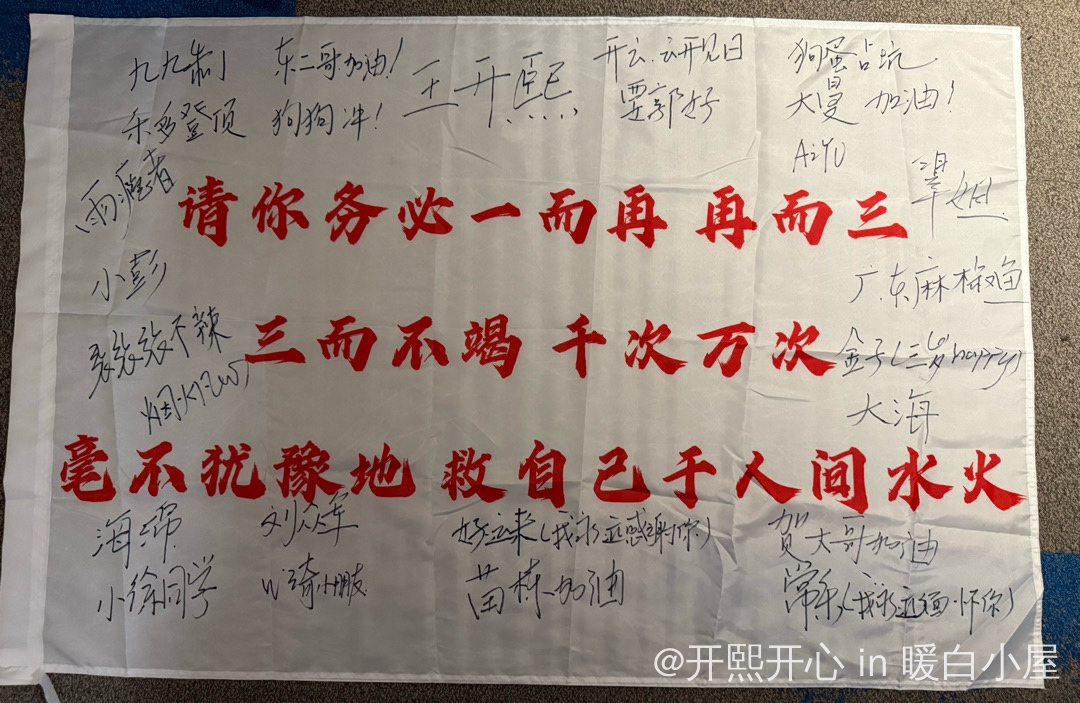 九九制
东二哥加油！
王开熙
开云.云开见日
狗蛋占坑
禾多登顶
狗狗冲！
郭好
大曼 加油！
AiYU
请你务必一而再 再而三
小彭
广东麻椒鱼
三而不竭 千次万次
张张张不辣
金子(三岁happy)
大海
毫不犹豫地 救自己于人间水火
海绵
刘众军
好运来(我永远感谢你)
贺大哥加油
小徐同学
琦小朋友
苗栋加油
常乐(我永远缅怀你)
@开熙开心 in 暖白小屋